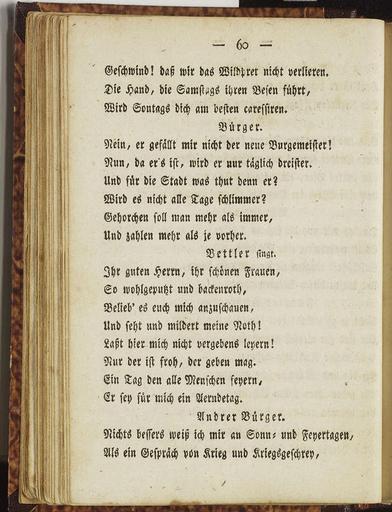 — 60 —
Geschwind! daß wir das Wildpret nicht verlieren.
Die Hand, die Samstags ihren Besen führt,
Wird Sontags dich am besten caressiren.
Bürger.
Nein, er gefällt mir nicht der neue Burgemeister!
Nun, da er's ist, wird er nur täglich dreister.
Und für die Stadt was thut denn er?
Wird es nicht alle Tage schlimmer?
Gehorchen soll man mehr als immer,
Und zahlen mehr als je vorher.
Bettler singt.
Ihr guten Herrn, ihr schönen Frauen,
So wohlgeputzt und backenroth,
Belieb' es euch mich anzuschauen,
Und seht und mildert meine Noth!
Laßt hier mich nicht vergebens leyern!
Nur der ist froh, der geben mag.
Ein Tag den alle Menschen feyern,
Er sey für mich ein Aerndetag.
Andrer Bürger.
Nichts bessers weiß ich mir an Sonn- und Feyertagen,
Als ein Gespräch von Krieg und Kriegsgeschrey,